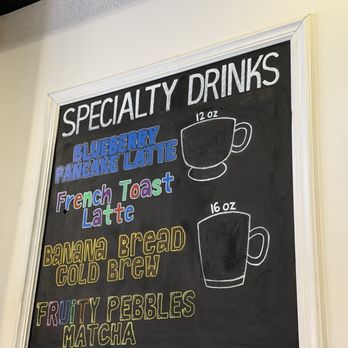 SPECIALTY DRINKS
BLUEBERRY
PANCAKE LATTE
12 OZ
French Toast
Latte
16 OZ
BANANA BREAD
COLD BREW
FRUITY PEBBLES
MATCHA